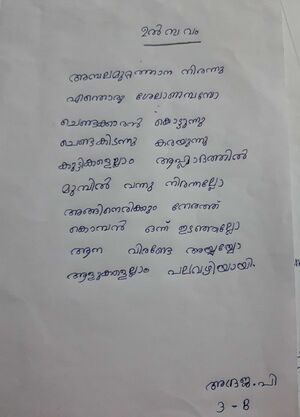 ഉൽസവം
അമ്പലമുറ്റത്താന നിരന്നു
എന്തൊരു ശേലാണമ്പമ്പോ
ചെണ്ടക്കാരനു കൊട്ടുന്നു
ചെണ്ടകിടന്നു കരയുന്നു
കുട്ടികളെല്ലാം ആഹ്ലാദത്തിൽ
മുമ്പിൽ വന്നു നിരന്നല്ലോ
അങ്ങിനെരിക്കും നേരത്ത്
കൊമ്പൻ ഒന്ന് ഇടഞ്ഞല്ലോ
ആന വിരണ്ടേ അയ്യയ്യോ
ആളുകളെല്ലാം പലവഴിയായി.
പി
3 - B